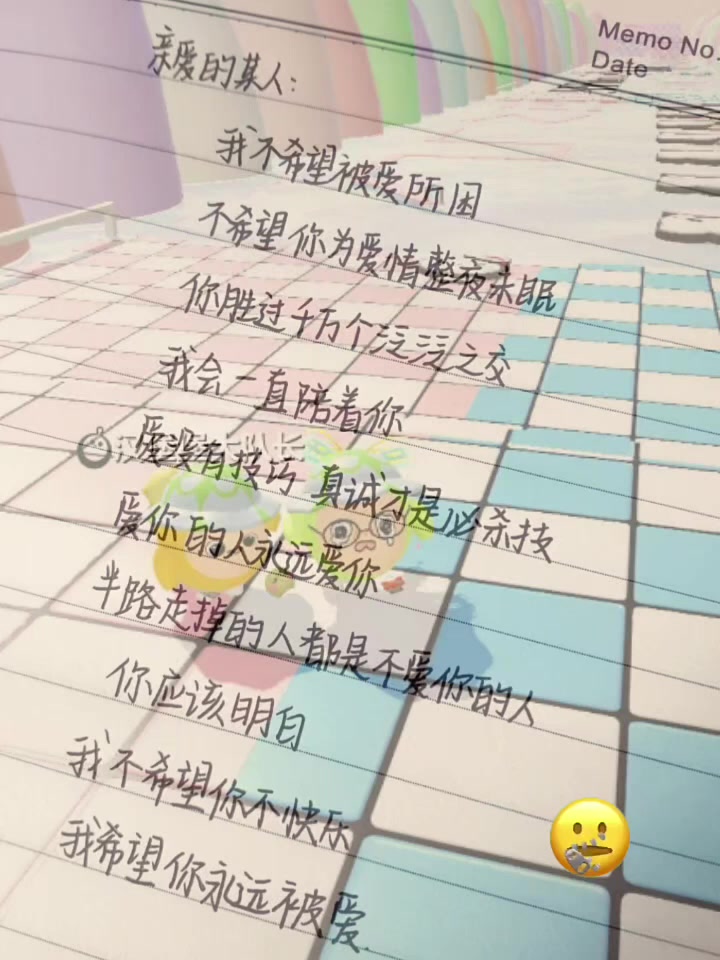 Memo No.
Date
亲爱的某人:
我不希望被爱所困
不希望你为爱情整夜未眠
你胜过千万个泛泛之交
我会一直陪着你
爱没有技巧 真诚才是必杀技
爱你的人永远爱你
半路走掉的人都是不爱你的人
你应该明白
我不希望你不快乐
我希望你永远被爱
大队长